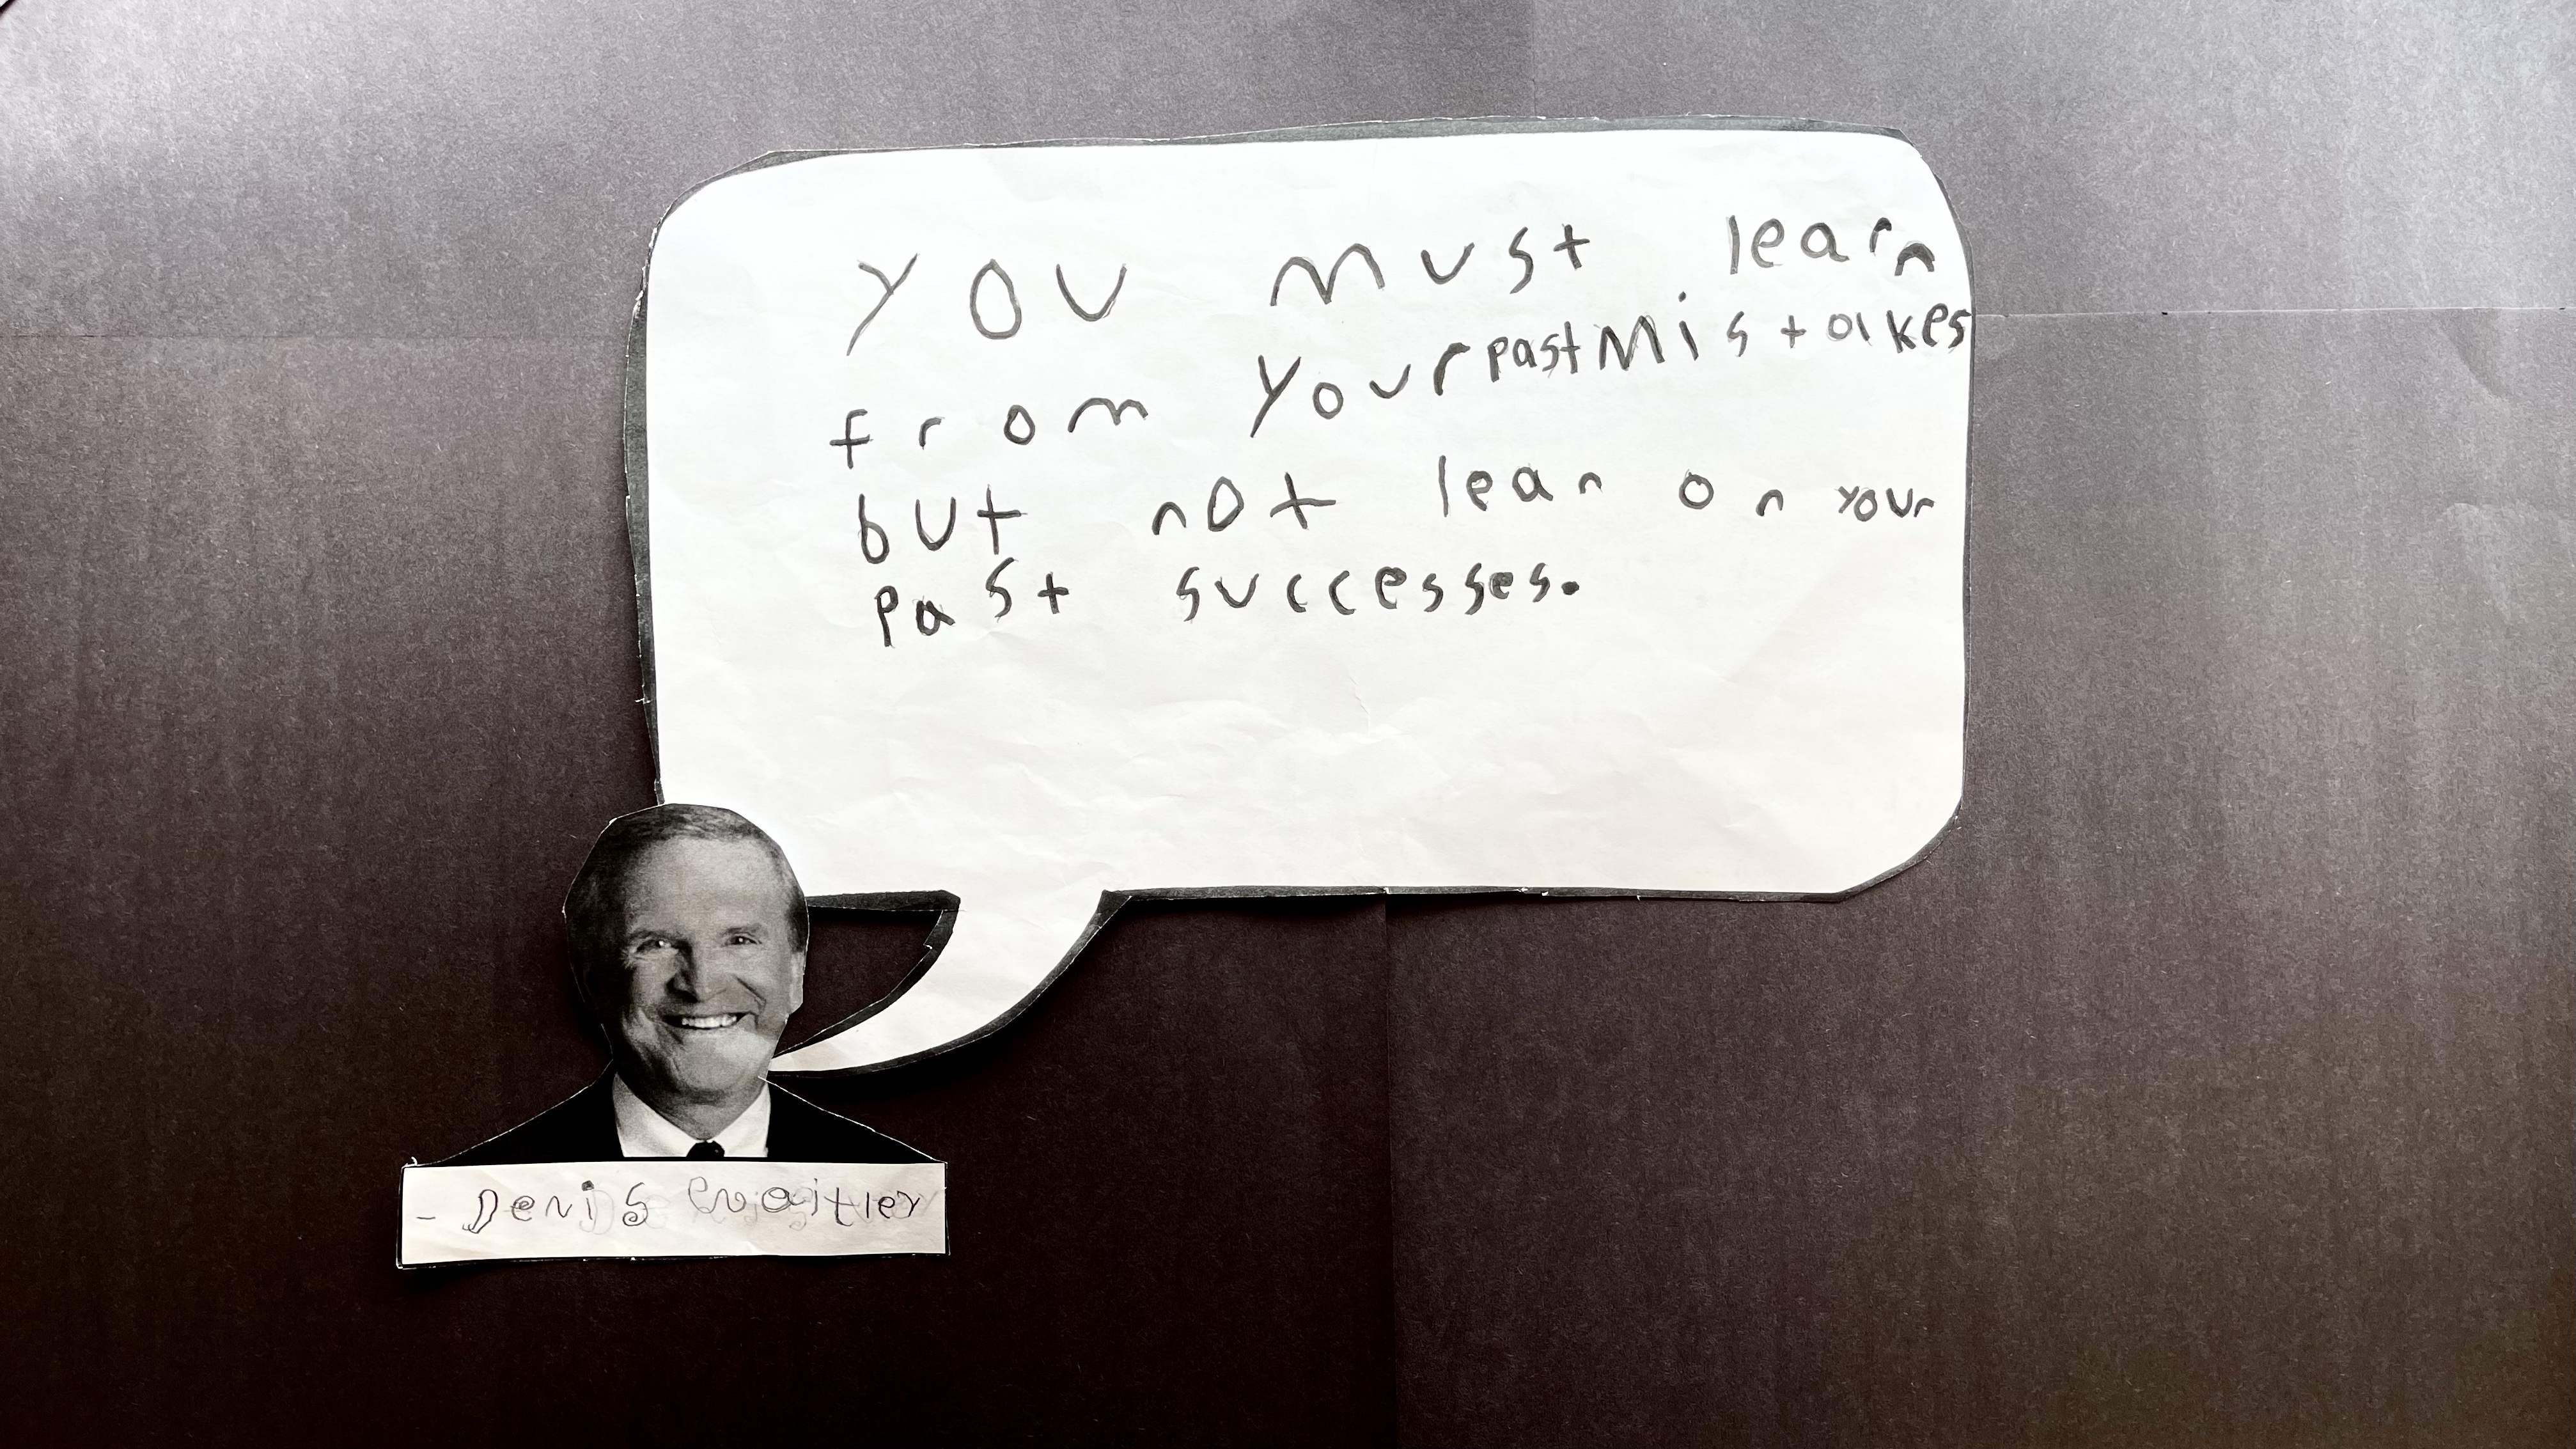 You must learn
from your past Mistakes
but not lean on your
past successes.
- Denis Waitley